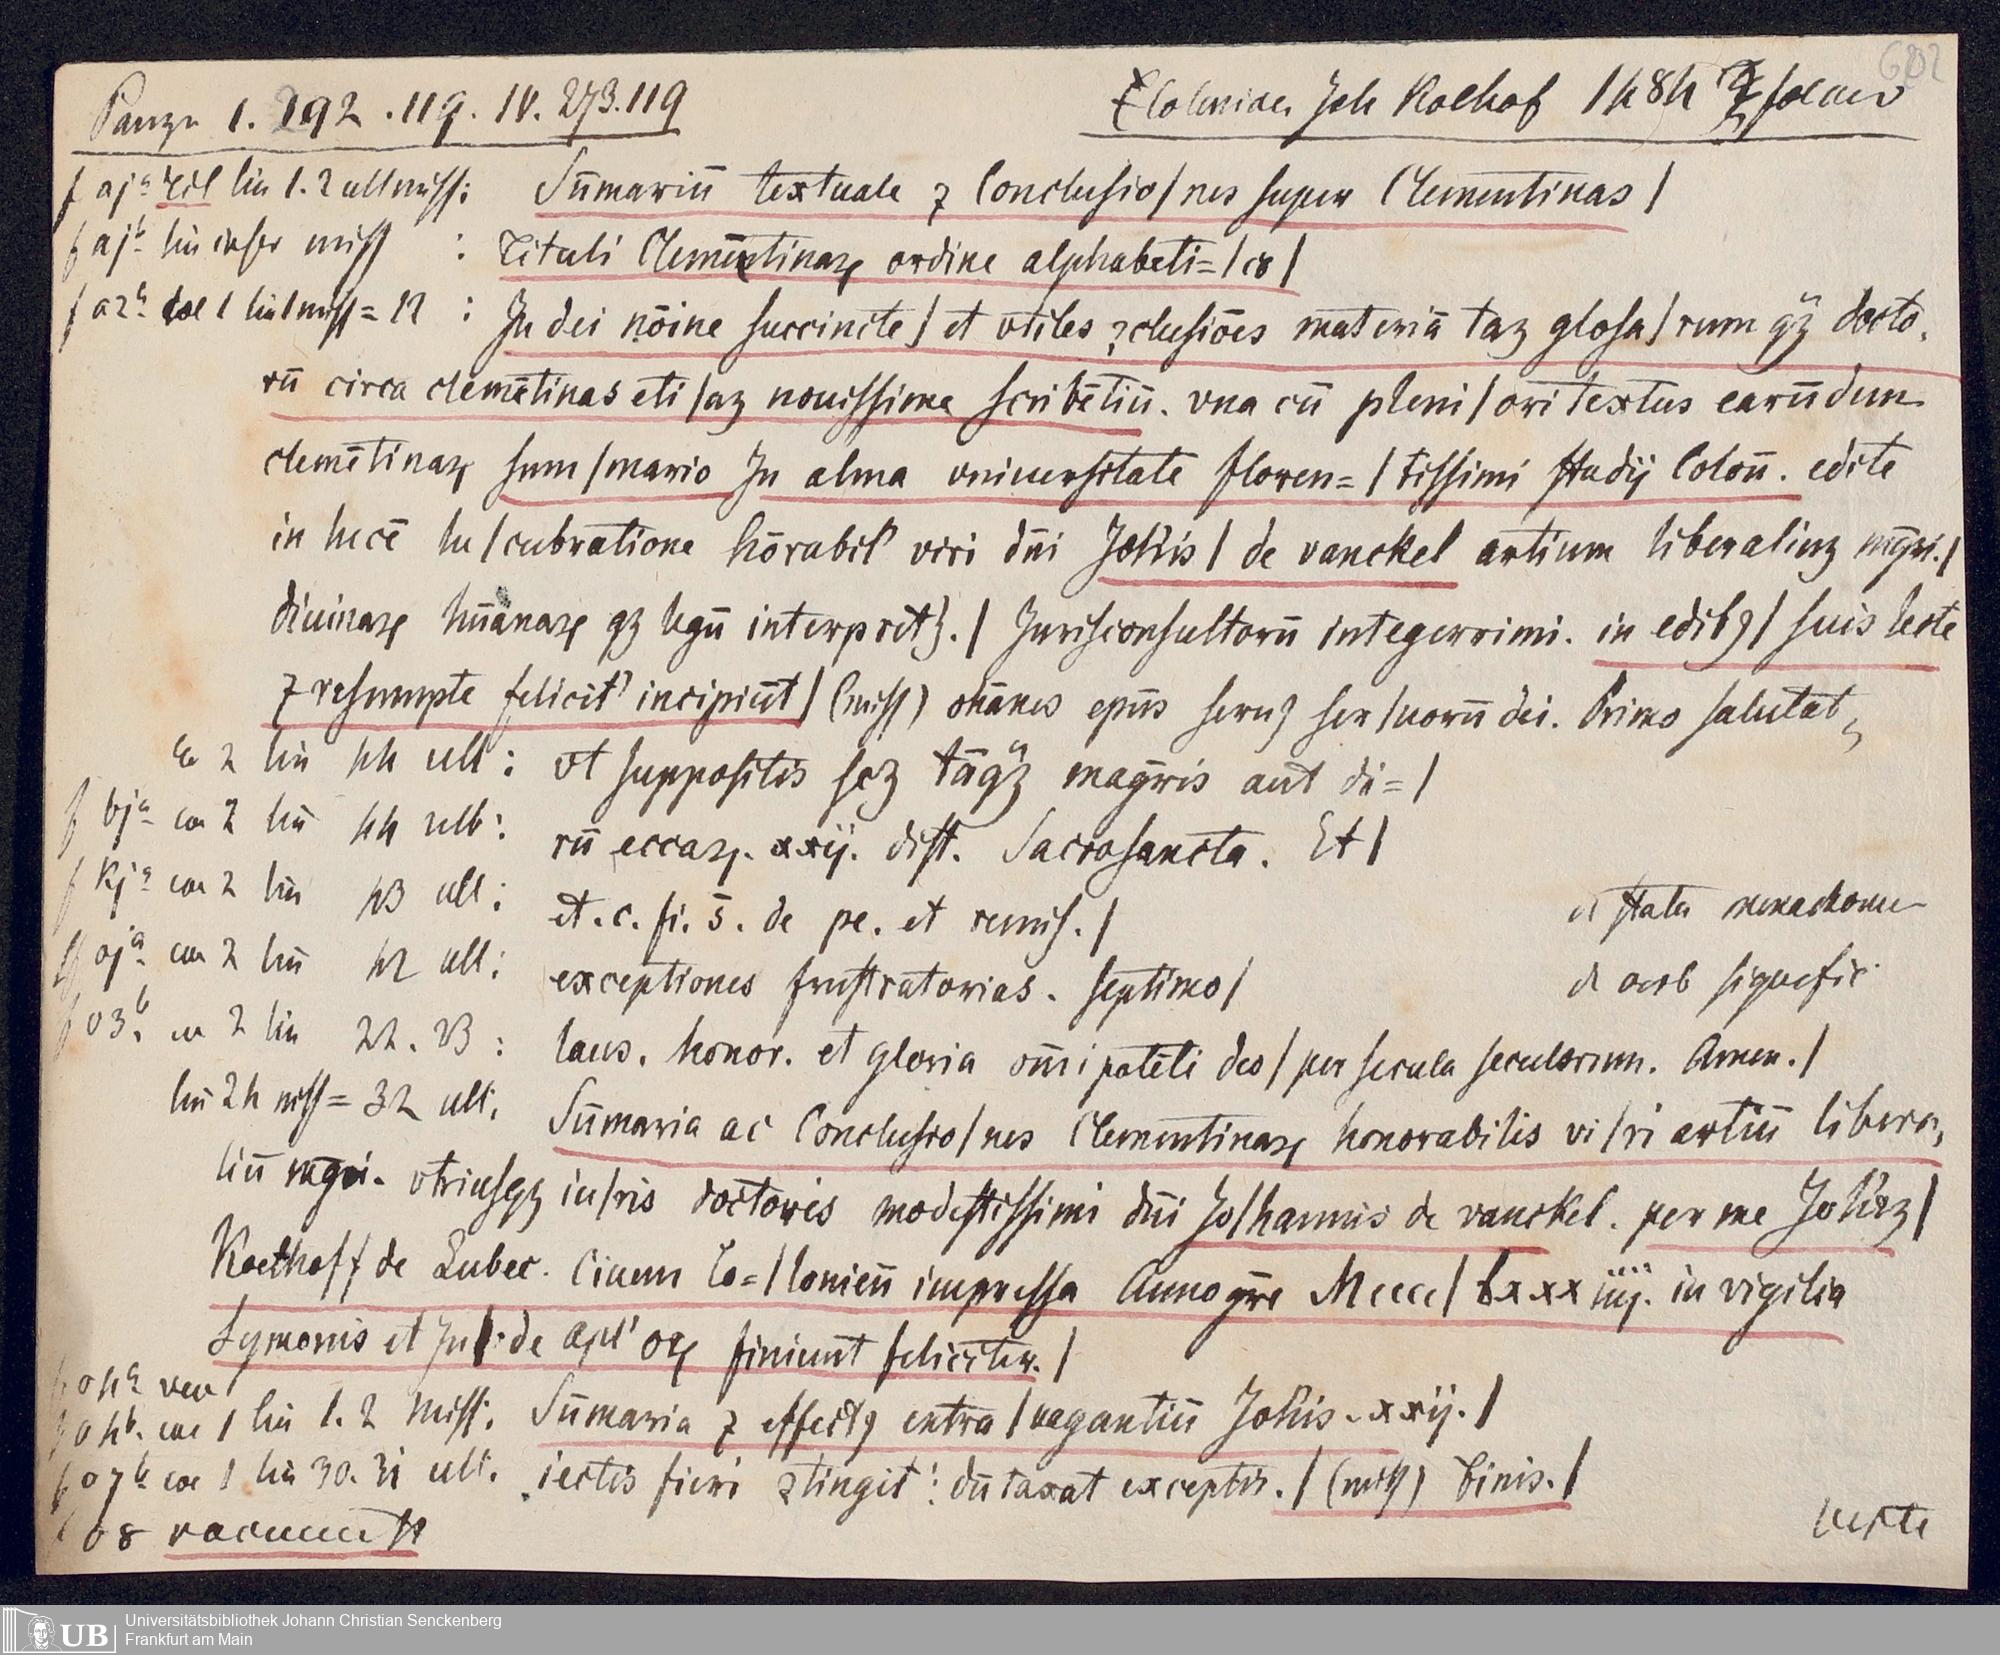 Panzer 1. 292. 119. IV. 273. 119
Coloniae Joh Koelhof 1484 folior
602
f aj a Titl lin 1. 2 ult miss: Sūmariū textuale ⁊ Conclusio/nes super Clementinas/
f aj b lin infer miss : Tituli Clemētinaꝝ ordine alphabeti=/co/
f a2 a col 1 lin 1 miss = 12 : In dei nōine succincte/ et vtiles ꝯclusiōes materiā taꝫ glosa/rum qꝫ docto.
rū circa clemētinas eti/aꝫ nouissime scribētiū. vna cū pleni/ori textus earūdem
clemētinaꝝ sum/mario In alma vniuersitate floren=/tissimi studij Coloñ. edite
in hecē lu/cubratione hōrabil' viri dn̄i Joh̄is/ de vanckel artium liberaliuꝫ mgr̄i./
diuinaꝝ hūanaꝝ qꝫ legū interpretꝫ./ Jurisconsultorū integerrimi. in edibꝯ/ suis lecte
⁊ resumpte felicit' incipiūt/ (miss) oh̄anes epūs seruꝯ ser/uorū dei. Primo salutat
co 2 lin 44 ult : vt suppositis scꝫ tāqꝫ magr̄is aut di=/
f bj a co 2 lin 44 ult : rū eccaꝝ. xxij. dist. Sacrosancta. Et/
f kj a co 2 lin 43 ult : et. c. fi. §. de pe. et remis./
f oj a co 2 lin 42 ult : exceptiones frustratorias. septimo/
d verb signific.
f o3 b co 2 lin 22. 23 : laus. honor. et gloria om̄ipotēti deo/ per secula seculorum. Amen./
lin 24 miss = 32 ult. Sūmaria ac Conclusio/nes Clementinaꝝ honorabilis vi/ri artiū libera,
liū mgri. vtriusqꝫ iu/ris doctoris modestissimi dn̄i Jo/hannis de vanckel. per me Joh̄eꝫ/
Koelhoff de Lubec. Ciuem Co=/lonieñ impressa Anno gr̄e Mcccc/ lxxxiiij. in vigilia
Symonis et Ju/de apl'oꝝ finiunt feliciter./
f o4 a vac
f o4 b. co 1 lin 1. 2 miss. Sūmaria ⁊ effectꝯ extra/uagantiū Joh̄is. xxij./
f o7 b co 1 lin 30. 31 ult. iectis fieri ꝯtingit: dūtaxat exceptis./ (miss) binis./
f o8 vacuum est
verte
Universitätsbibliothek Johann Christian Senckenberg
Frankfurt am Main
UB